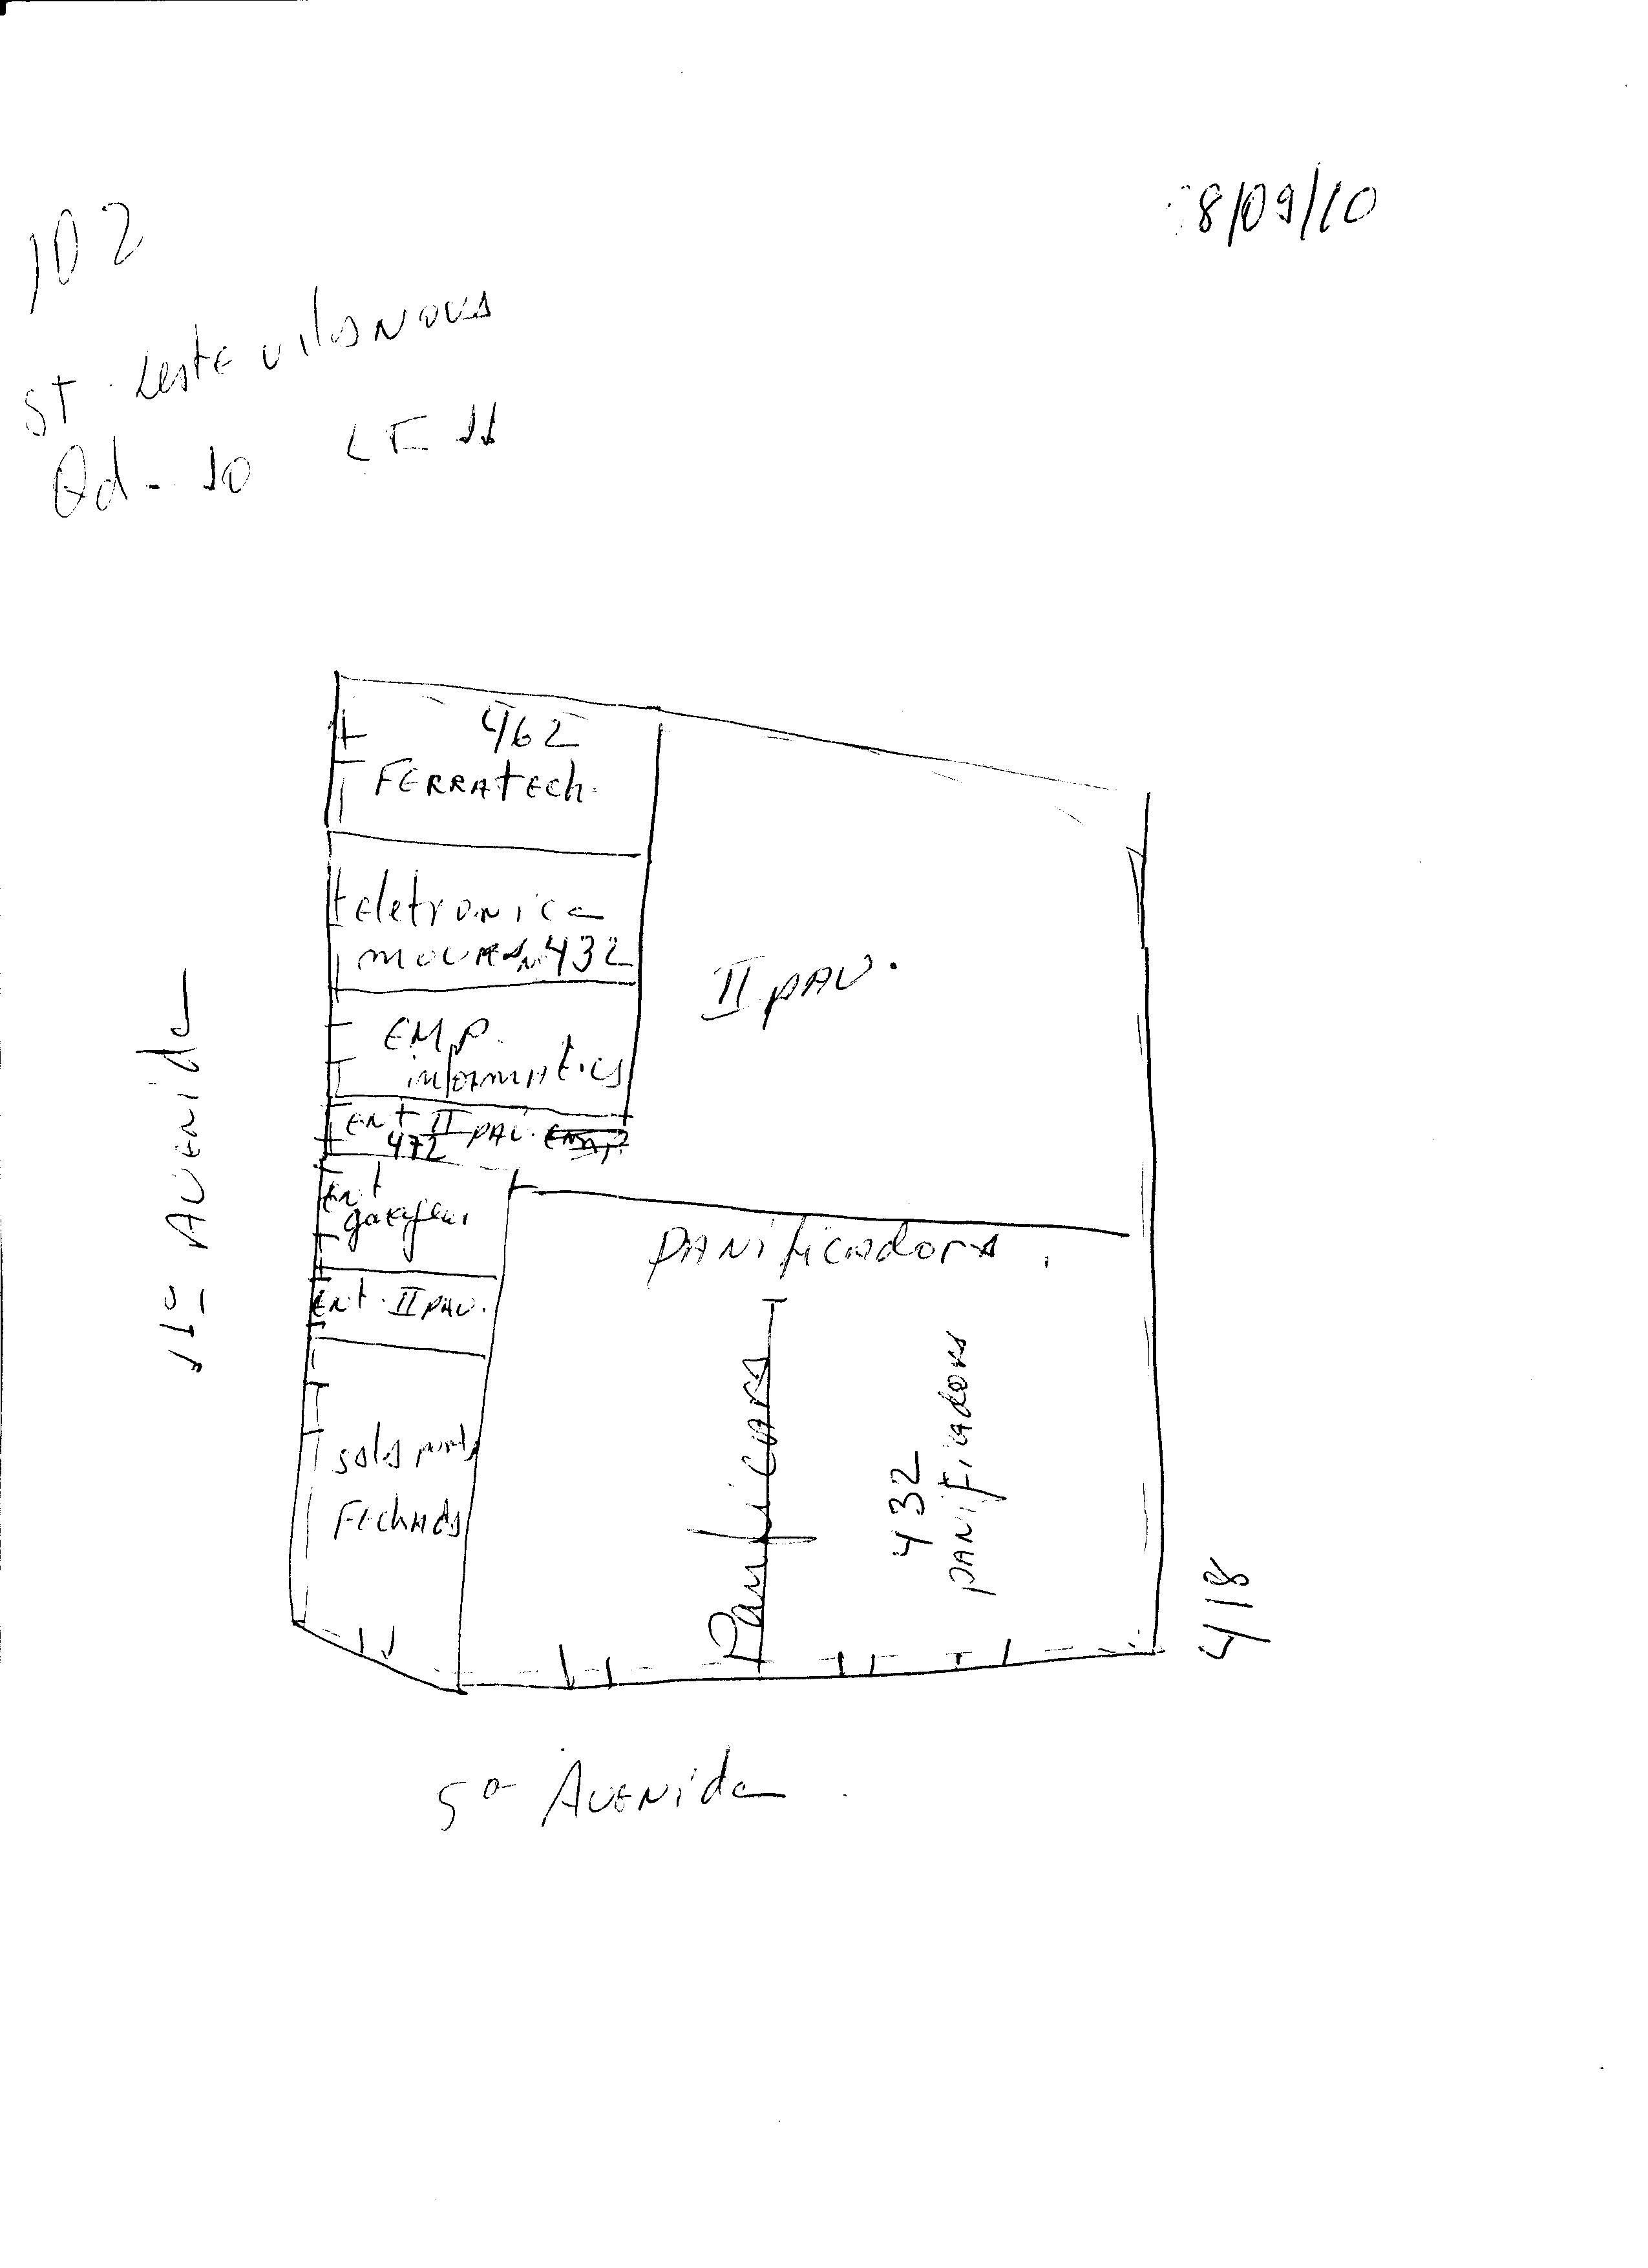 102
8/09/10
ST. Leste vila Nova
Qd - 10 LT 11
462
FERRAtECh.
Eletronica
432
EMP.
informatica
ENt II PAV.
472
Ent
garagem
Ent. II PAV.
sala
FEchada
II PAV.
PANificadora.
Panificara
432
PANiFicadora
418
11º AVENida
5ª AVENida